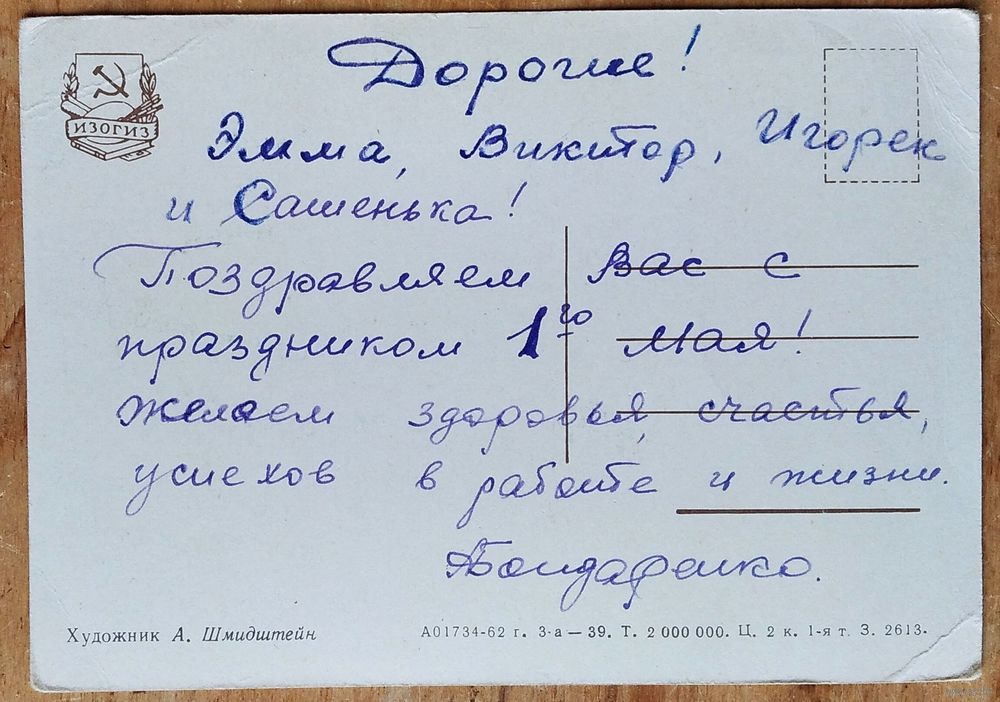 Дорогие!
ИЗОГИЗ
Эмма, Виктор, Игорек
и Сашенька!
Поздравляем Вас с
праздником 1го Мая!
Желаем здоровья, счастья,
успехов в работе и жизни.
Бондаренко.
Художник А. Шмидштейн
А01734-62 г. 3-а — 39. Т. 2 000 000. Ц. 2 к. 1-я т. З. 2613.